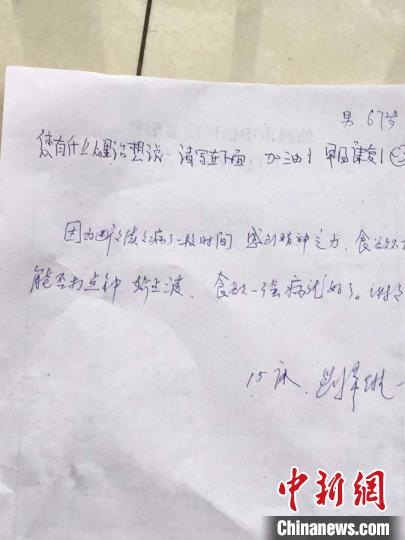 男 67岁
您有什么心里话想说. 请写在下面. 加油！早日康复！
因为断续病了一段时间, 感到精神乏力, 食欲不
能否打点针 输点液、食欲一强病就好了。谢谢
15床
中新网
Chinanews.com